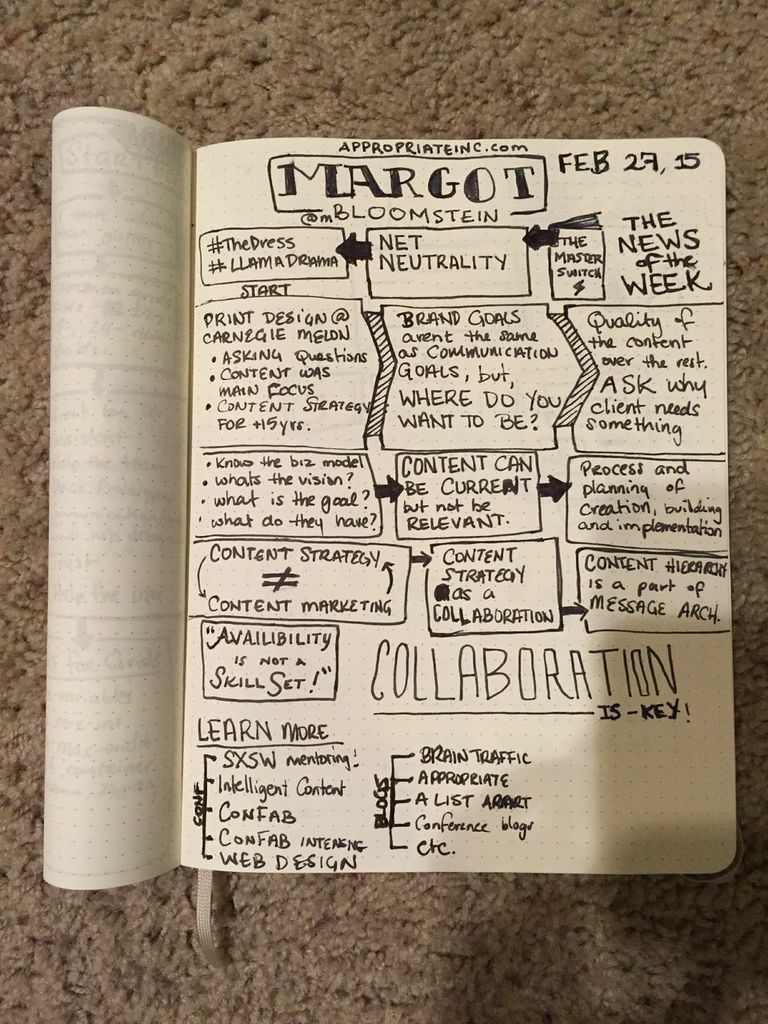 APPROPRIATEINC.com
MARGOT
@mBLOOMSTEIN
FEB 27, 15
#TheDress
#LLAMADRAMA
NET
NEUTRALITY
THE
MASTER
SWITCH
THE
NEWS
of the
WEEK
START
PRINT DESIGN @
CARNEGIE MELON
• ASKING Questions
• CONTENT WAS
MAIN FOCUS
• CONTENT STRATEGY
FOR +15yrs.
BRAND GOALS
arent the same
as COMMUNICIATION
GOALS, but,
WHERE DO YOU
WANT TO BE?
Quality of
the content
over the rest.
ASK why
client needs
something
• Know the biz model
• whats the vision?
• what is the goal?
• what do they have?
CONTENT CAN
BE CURRENT
but not be
RELEVANT.
Process and
planning of
creation, building
and implementation
CONTENT STRATEGY
≠
CONTENT MARKETING
CONTENT
STRATEGY
as a
COLLABORATION
CONTENT HIERARCHY
is a part of
MESSAGE ARCH.
"AVAILIBILITY
IS NOT A
SKILL SET!"
COLLABORATION
IS-KEY!
LEARN MORE
CONF
SXSW mentoring!
Intelligent Content
CONFAB
CONFAB INTENSIVE
WEB DESIGN
BLOGS
BRAIN TRAFFIC
APPROPRIATE
A LIST APART
Conference blogs
etc.